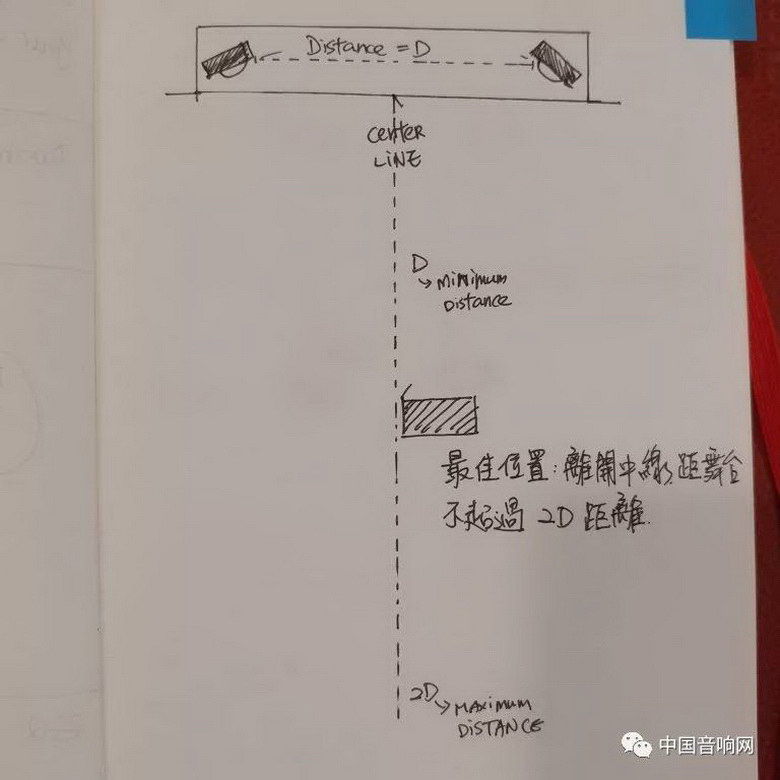 Distance = D
center
LINE
D
MINIMUM
DISTANCE
最佳位置:離開中線,距舞台
不超過 2D 距離.
2D
MAXIMUM
DISTANCE
中国音响网